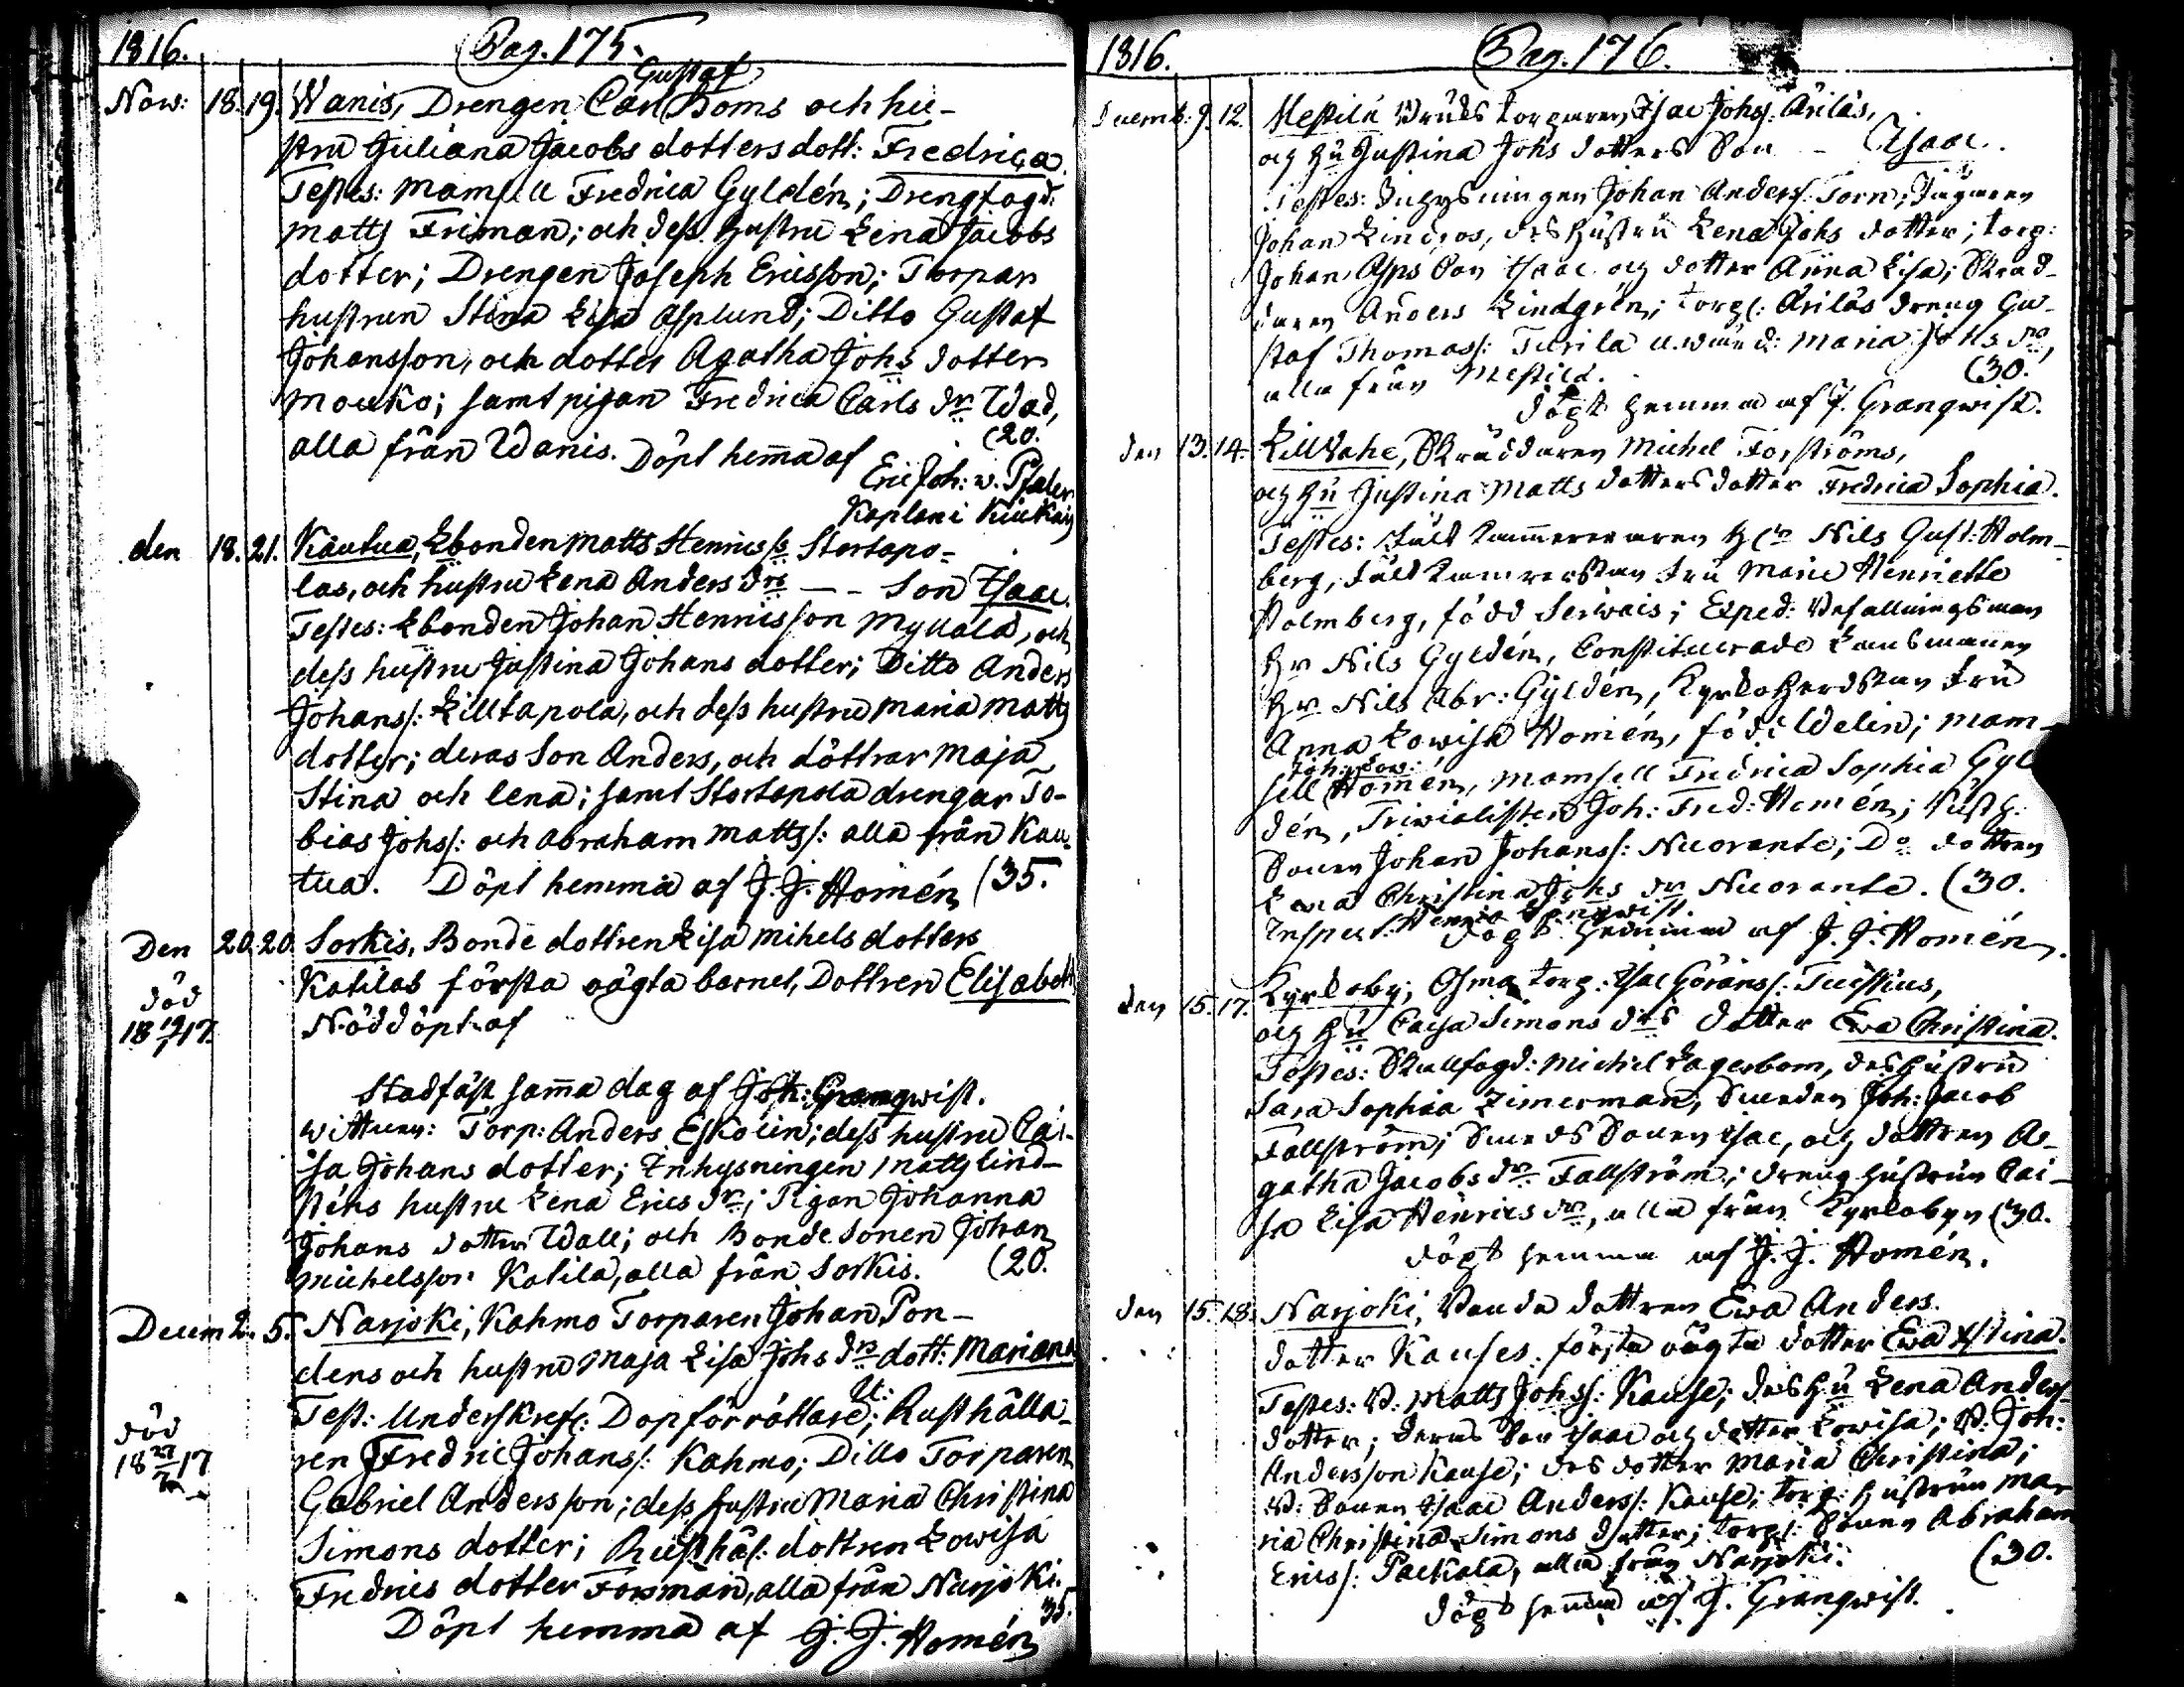 1816. Pag. 175.
Gustaf
Nov: 18. 19. Wanis, Drengen Carl Boms och hu-
stru Juliana Jacobs dotters dott: Fredrica
Testes: Mamsell Fredrica Gyldén; Drengfogd:
Matts Friman; och dess hustru Lena Jacobs
dotter; Drengen Joseph Ericsson; Torpar
hustrun Stina Lisa Asplund; Ditto Gustaf
Johansson, och dotter Agatha Johs dotter
Mouko; samt pigan Fredrica Carls dr Wad,
alla från Wanis. Döpt hema af (20.
Eric Joh: v. Pfaler
Kaplan i Kiukais
den 18. 21. Kautua, Ebonden Matts Henricss Stortapo-
las, och hustru Lena Anders drs — - Son Isaac.
Testes: Ebonden Johan Henricsson Myllälä, och
dess hustru Justina Johans dotter; Ditto Anders
Johanss: Lilltapola, och dess hustru Maria Matts
dotter; deras Son Anders, och döttrar Maja
Stina och Lena; samt Stortapola drengar To-
bias Johss: och Abraham Mattss: alla från Kau-
tua. Döpt hemma af J. J. Homén (35.
Den 20. 20. Sorkis, Bonde dottren Lisa Mihels dotters
Katilas första oägta barnet, Dottren Elisabeth
död Nöddöpt af
18 17.
Stadfäst sama dag af Joh: Granqwist.
Wittnen: Torp: Anders Eskolin; dess hustru Cai-
sa Johans dotter; Inhysningen Matts Lind-
sténs hustru Lena Erics dr; Pigan Johanna
Johans dotter Wall; och Bonde Sonen Johan
Michelsson Katila, alla från Sorkis. (20.
Decem 2. 5. Narjoki, Kahmo Torparen Johan Pon-
dens och hustru Maja Lisa Johs drs dott: Mariana
Test: Underskrefs: Dopförrättare; Rusthålla-
död ren Fredric Johanss: Kahmo; Ditto Torparen
18 17 Gabriel Andersson; dess hustru Maria Christina
Simons dotter; Rusthål: dottren Lowisa
Fredrics dotter Forsman, alla från Narjoki.
Döpt hemma af J. J. Homén 35.
1816. Pag. 176.
Decemb. 9. 12. Mestilä Bruks torparen Isac Johss: Arilas,
och hu Justina Johs dotters Son - Isaac.
Testes: Inhysningen Johan Anderss: Torn; Jägaren
Johan Lindroos, dess hustru Lena Johs dotter; torp:
Johan Asps Son Isaac och dotter Anna Lisa; Skräd-
daren Anders Lindgrén; torps: Arilas dreng Gu-
staf Thomass: Turila Maria Johs dr,
alla från Mestilä. (30.
Döpt hemma af J. Granqwist.
den 13. 14. Lillvahe, Skräddaren Michel Forströms,
och hu Justina Matts dotters dotter Fredrica Sophia.
Testes: Fält Kammereraren Hr Nils Gust: Holm-
berg, Fält Kamrerskan Fru Marie Henriette
Holmberg, född Servais; Exped: Befallningsman
Hr Nils Gyldén, Constituerade Länsmannen
Hr Nils Abr: Gyldén, Kyrkoherdskan Fru
Anna Lowisa Homén, född Idelin; Mam-
sell Homén, Mamsell Fredrica Sophia Gyl
dén, Trivialisten Joh: Fred: Homén; Rusth:
Sonen Johan Johanss: Nuorante; Do dottren
Christina Johs dr Nuorante. (30.
Inspect: Henric Granqwist
Döpt hemma af J. J. Homén.
den 15. 17. Kyrkoby, Osma torp: Isac Göranss: Tuissius,
och hu Caisa Simons drs dotter Ewa Christina.
Testes: Skallfogd: Michel Lagerbom, dess hustru
Sara Sophia Zimerman; Smeden Joh: Jacob
Fallström; Smeds Sonen Isac, och dottren A-
gatha Jacobs dr Fallström; dreng hustrun Cai-
sa Lisa Henrics dr, alla från Kyrkobyn (30.
döpt hemma af J. J. Homén.
den 15. 18. Narjoki, Bonde dottren Ewa Anders
dotter Kauses första oägta dotter Ewa Stina.
Testes: B. Matts Johss: Kause; dess hu Lena Anders
dotter; deras Son Isaac och dotter Lowisa; B. Joh:
Andersson Kause; dess dotter Maria Christina;
B: Sonen Isaac Anderss: Kause; torp: hustrun Ma-
ria Christina Simons dotter; torps: Sonen Abraham
Ericss: Packala, alla från Narjoki. (30.
döpt hema af J. Granqwist.